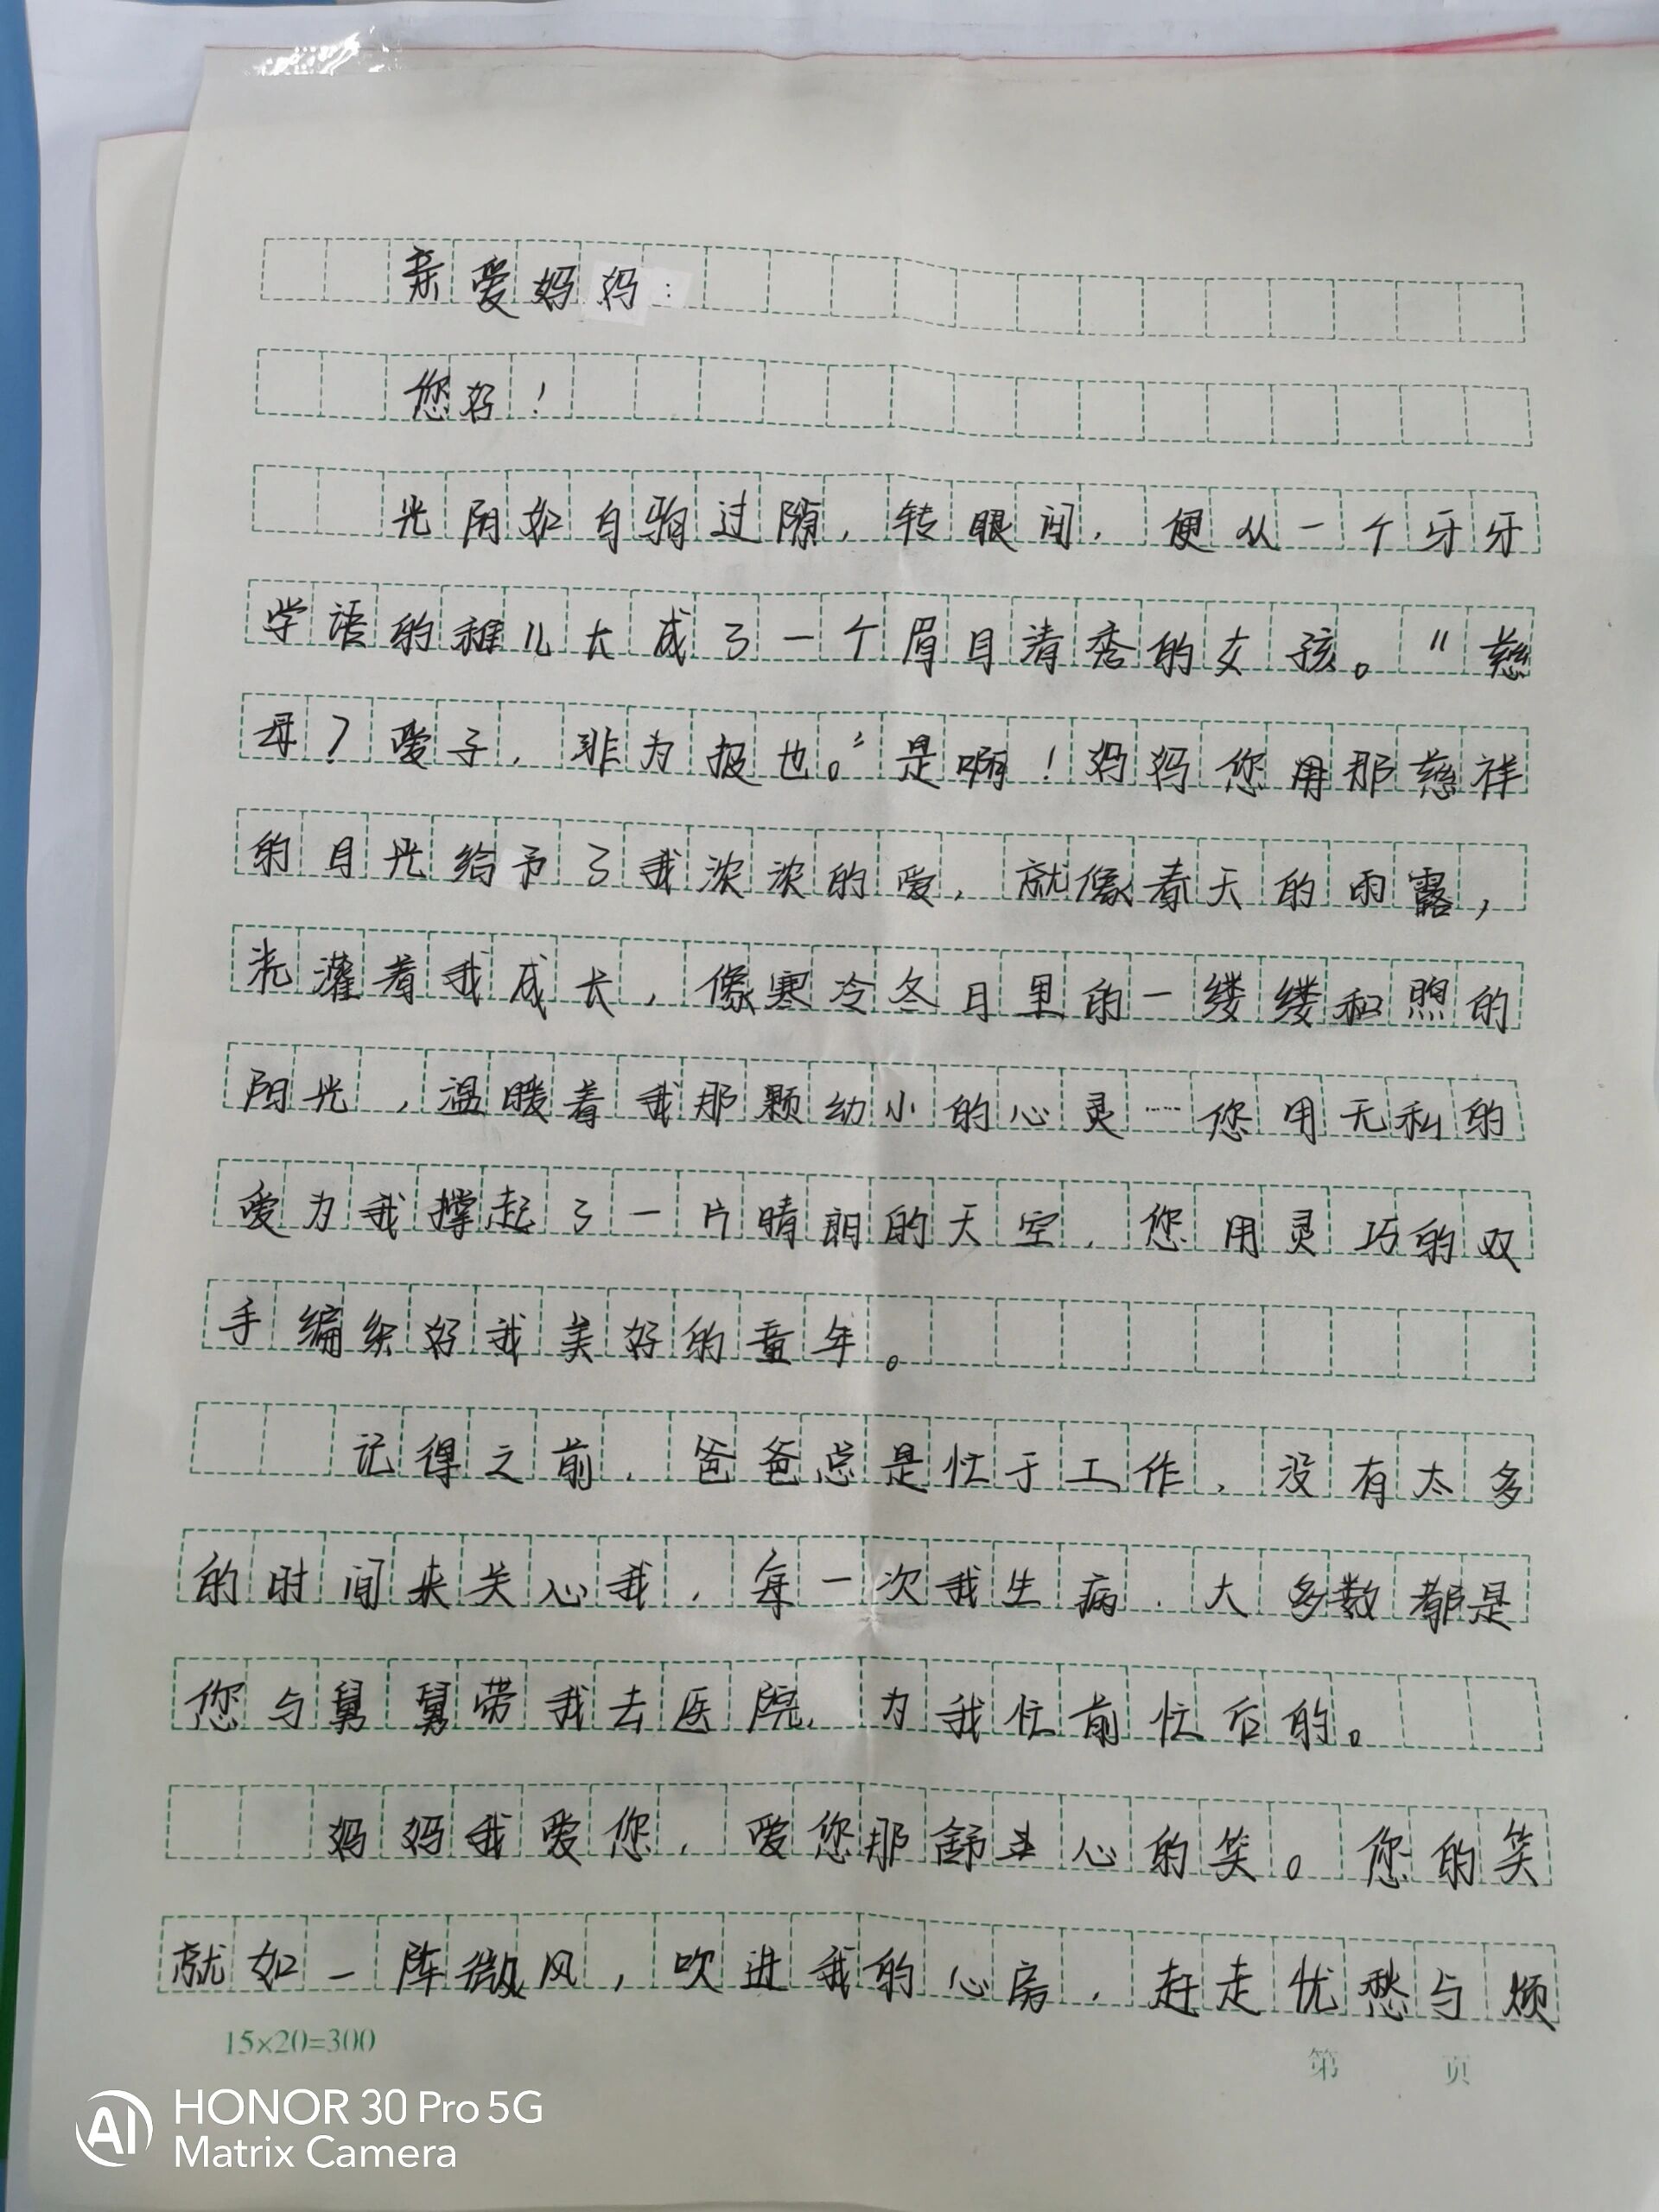 亲爱妈妈：
您好！
光阴如白驹过隙，转眼间，便从一个牙牙
学语的稚儿大成了一个眉目清秀的女孩。"慈
母？爱子，非为报也。"是啊！妈妈您用那慈祥
的目光给予了我浓浓的爱，就像春天的雨露，
浇灌着我成长，像寒冷冬日里的一缕缕和煦的
阳光，温暖着我那颗幼小的心灵……您用无私的
爱为我撑起了一片晴朗的天空，您用灵巧的双
手编织好我美好的童年。
记得之前，爸爸总是忙于工作，没有太多
的时间来关心我，每一次我生病，大多数都是
您与舅舅带我去医院，为我忙前忙后的。
妈妈我爱您，爱您那舒心的笑。您的笑
就如一阵微风，吹进我的心房，赶走忧愁与烦
15×20=300
第 页
AI HONOR 30 Pro 5G
Matrix Camera